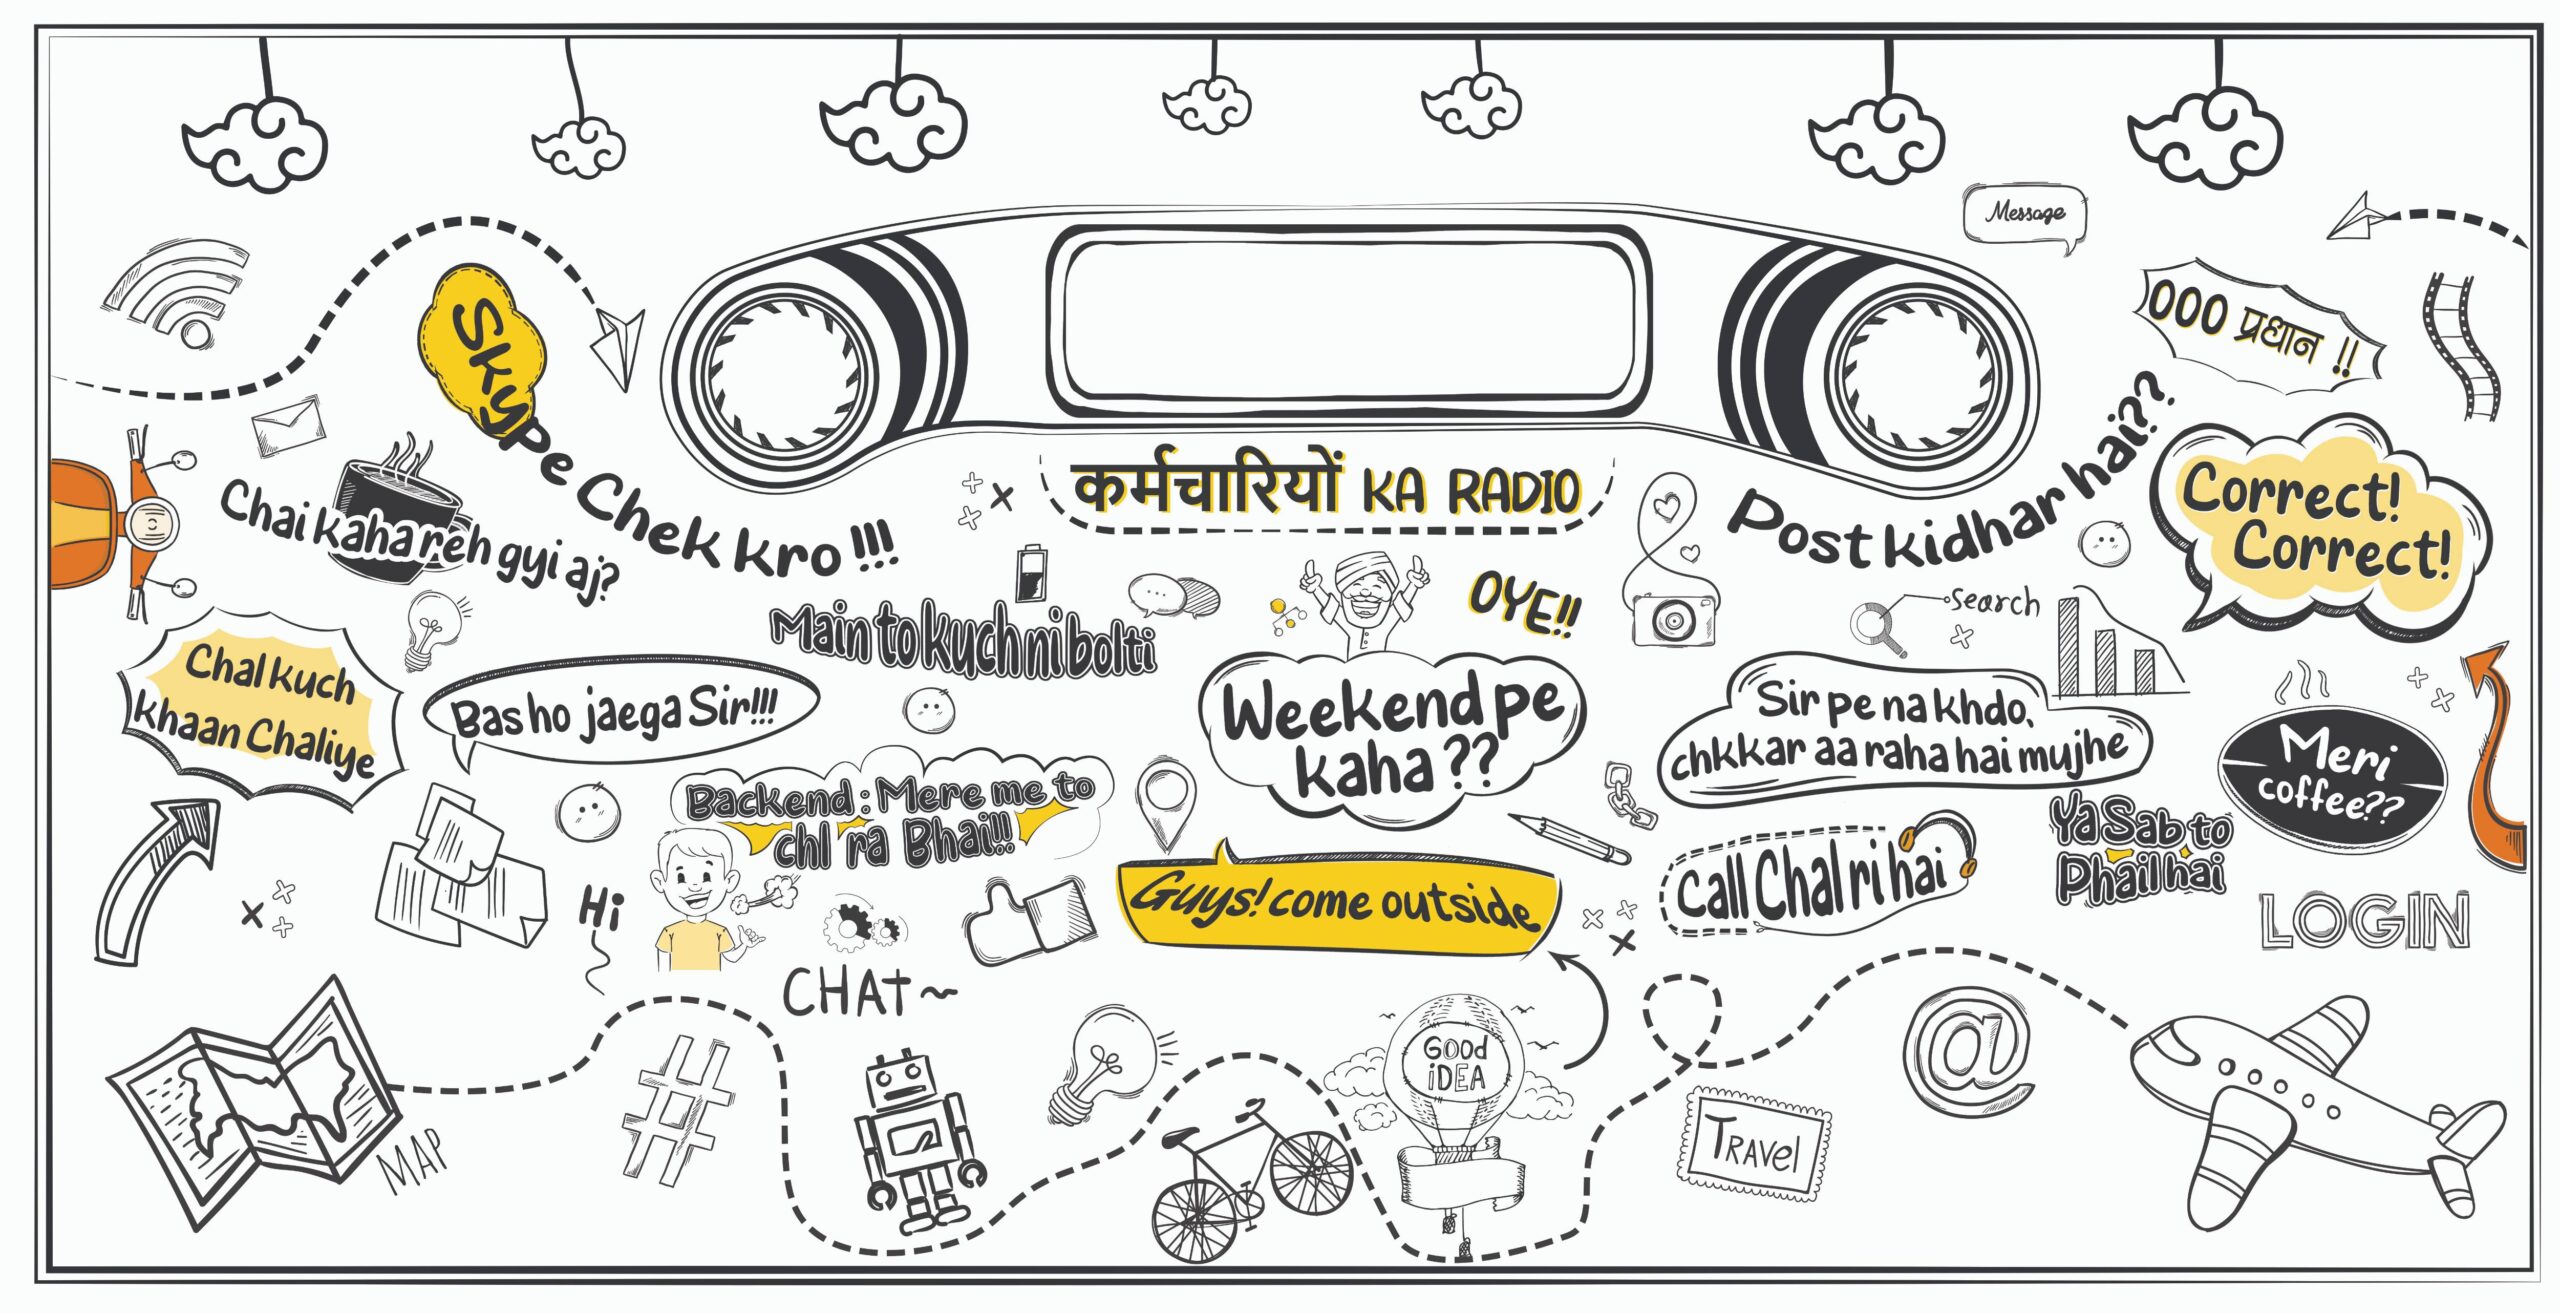 Message
000 प्रधान !!
Skype Chek kro !!!
कर्मचारियों KA RADIO
Post kidhar hai??
Correct!
Correct!
Chai kaha reh gyi aj?
OYE!!
search
Main to kuch ni bolti
Chal kuch
khaan Chaliye
Bas ho jaega Sir!!!
Weekend pe
kaha ??
Sir pe na khdo,
chkkar aa raha hai mujhe
Meri
coffee??
Backend : Mere me to
chl ra Bhai!!!
Ya Sab to
Phail hai
Guys! come outside
Call Chal ri hai
Hi
LOGIN
CHAt ~
GOOd
iDEA
MAP
TRAVel
#
@